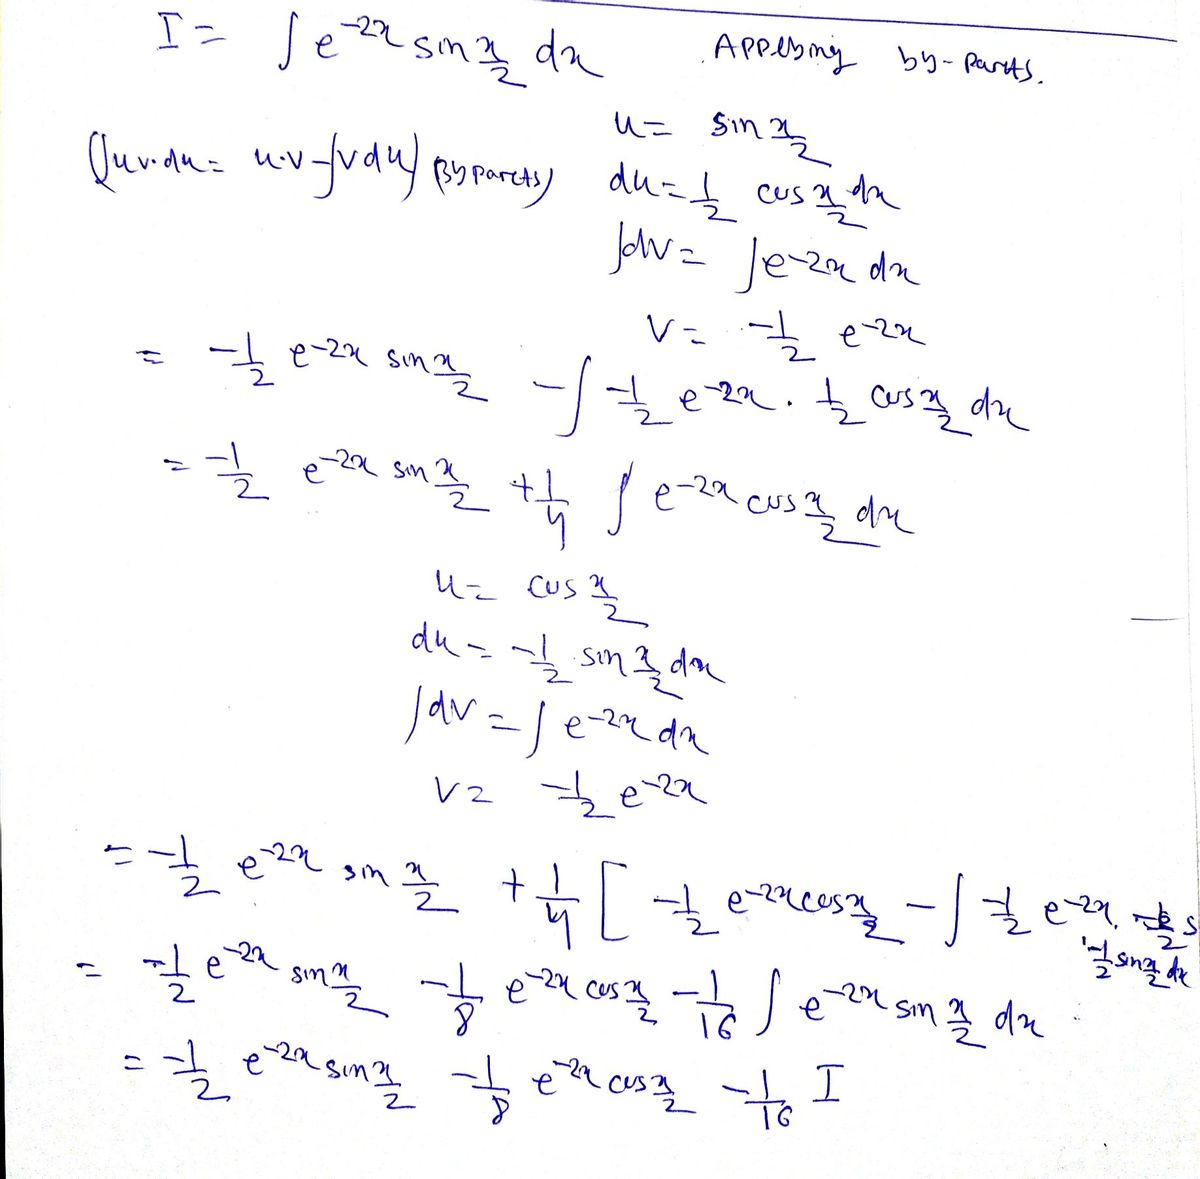 I = ∫e^-2x sin x/2 dx Applying by-parts.
u = sin x/2
(∫uv.du = u.v-∫vdu) (By parts) du = 1/2 cos x/2 dx
∫dv = ∫e^-2x dx
v = -1/2 e^-2x
= -1/2 e^-2x sin x/2 - ∫ -1/2 e^-2x . 1/2 cos x/2 dx
= -1/2 e^-2x sin x/2 + 1/4 ∫ e^-2x cos x/2 dx
u = cos x/2
du = -1/2 sin x/2 dx
∫dv = ∫e^-2x dx
v = -1/2 e^-2x
= -1/2 e^-2x sin x/2 + 1/4 [ -1/2 e^-2x cos x/2 - ∫ -1/2 e^-2x .
-1/2 sin x/2 dx
= -1/2 e^-2x sin x/2 - 1/8 e^-2x cos x/2 - 1/16 ∫ e^-2x sin x/2 dx
= -1/2 e^-2x sin x/2 - 1/8 e^-2x cos x/2 - 1/16 I